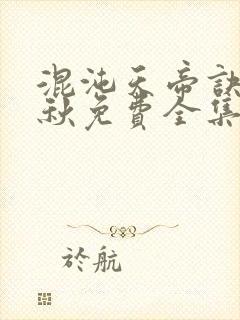 混沌天帝訣
秋免費全集
於航